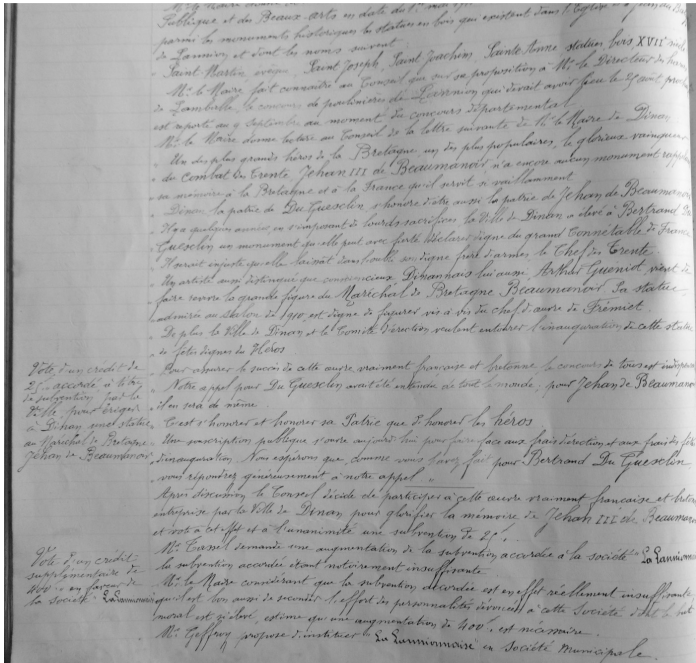 Publique et des Beaux-arts en date du
parmi les monuments historiques les statues en bois qui existent dans l'Eglise
de Lannion et dont les noms suivent
Saint Martin évêque, Saint Joseph, Saint Joachim, Sainte Anne statues bois XVIIe siècle
Mr le Maire fait connaître au Conseil que sur sa proposition à Mr le Directeur du haras
de Lamballe, le concours de poulinières de Lannion qui devait avoir lieu le 25 août prochain
est reporté au 9 Septembre au moment du concours départemental
Mr le Maire donne lecture au Conseil de la lettre suivante de Mr le Maire de Dinan
" Un des plus grands héros de la Bretagne, un des plus populaires, le glorieux vainqueur
" du Combat des Trente Jehan III de Beaumanoir n'a encore aucun monument
" sa mémoire à la Bretagne et à la France qu'il servit si vaillamment
" Dinan, la patrie de Du Guesclin s'honore d'être aussi la patrie de Jehan de Beaumanoir
" Il y a quelques années, en s'imposant de lourds sacrifices la Ville de Dinan a élevé à Bertrand Du
" Guesclin un monument qu'elle peut avec fierté déclarer digne du grand Connétable de France
" Il serait injuste qu'elle laissât dans l'oubli son digne frère d'armes le Chef des Trente
" Un artiste aussi distingué que consciencieux Dinannais lui aussi Arthur Gueniot vient de
" faire revivre la grande figure du Maréchal de Bretagne Beaumanoir Sa statue
" admirée au Salon de 1910, est digne de figurer vis à vis du chef d'œuvre de Frémiet.
" De plus la Ville de Dinan et le Comité d'érection veulent entourer l'inauguration de cette statue
" de fêtes dignes du Héros.
" Pour assurer le succès de cette œuvre vraiment française et bretonne le concours de tous est
" Notre appel pour Du Guesclin avait été entendu de tout le monde, pour Jehan de Beaumanoir
" il en sera de même.
" C'est s'honorer et honorer sa Patrie que d'honorer les héros
" Une souscription publique s'ouvre aujourd'hui pour faire face aux frais d'érection et aux frais des fêtes
" d'inauguration. Nous espérons que, comme vous l'avez fait pour Bertrand Du Guesclin,
" vous répondrez généreusement à notre appel. "
Après discussion le Conseil décide de participer à cette œuvre vraiment française et
entreprise par la Ville de Dinan pour glorifier la mémoire de Jehan III de Beaumanoir
et vote à cet effet et à l'unanimité une subvention de 25f.
Mr Tassel demande une augmentation de la subvention accordée à la société La Lannionnaise
la subvention accordée étant notoirement insuffisante.
Mr le Maire considérant que la subvention accordée est en effet réellement insuffisante,
qu'il est bon aussi de seconder l'effort des personnalités dévouées à cette Société dont le but
moral est si élevé, estime que une augmentation de 400f. est nécessaire.
Mr Geffroy propose d'instituer La Lannionnaise en Société municipale.
Vote d'un crédit de
25f. accordé à titre
de subvention par la
Ville, pour ériger
à Dinan une statue
au Maréchal de Bretagne
Jehan de Beaumanoir
Vote d'un crédit
supplémentaire de
400f. en faveur de
la société La Lannionnaise